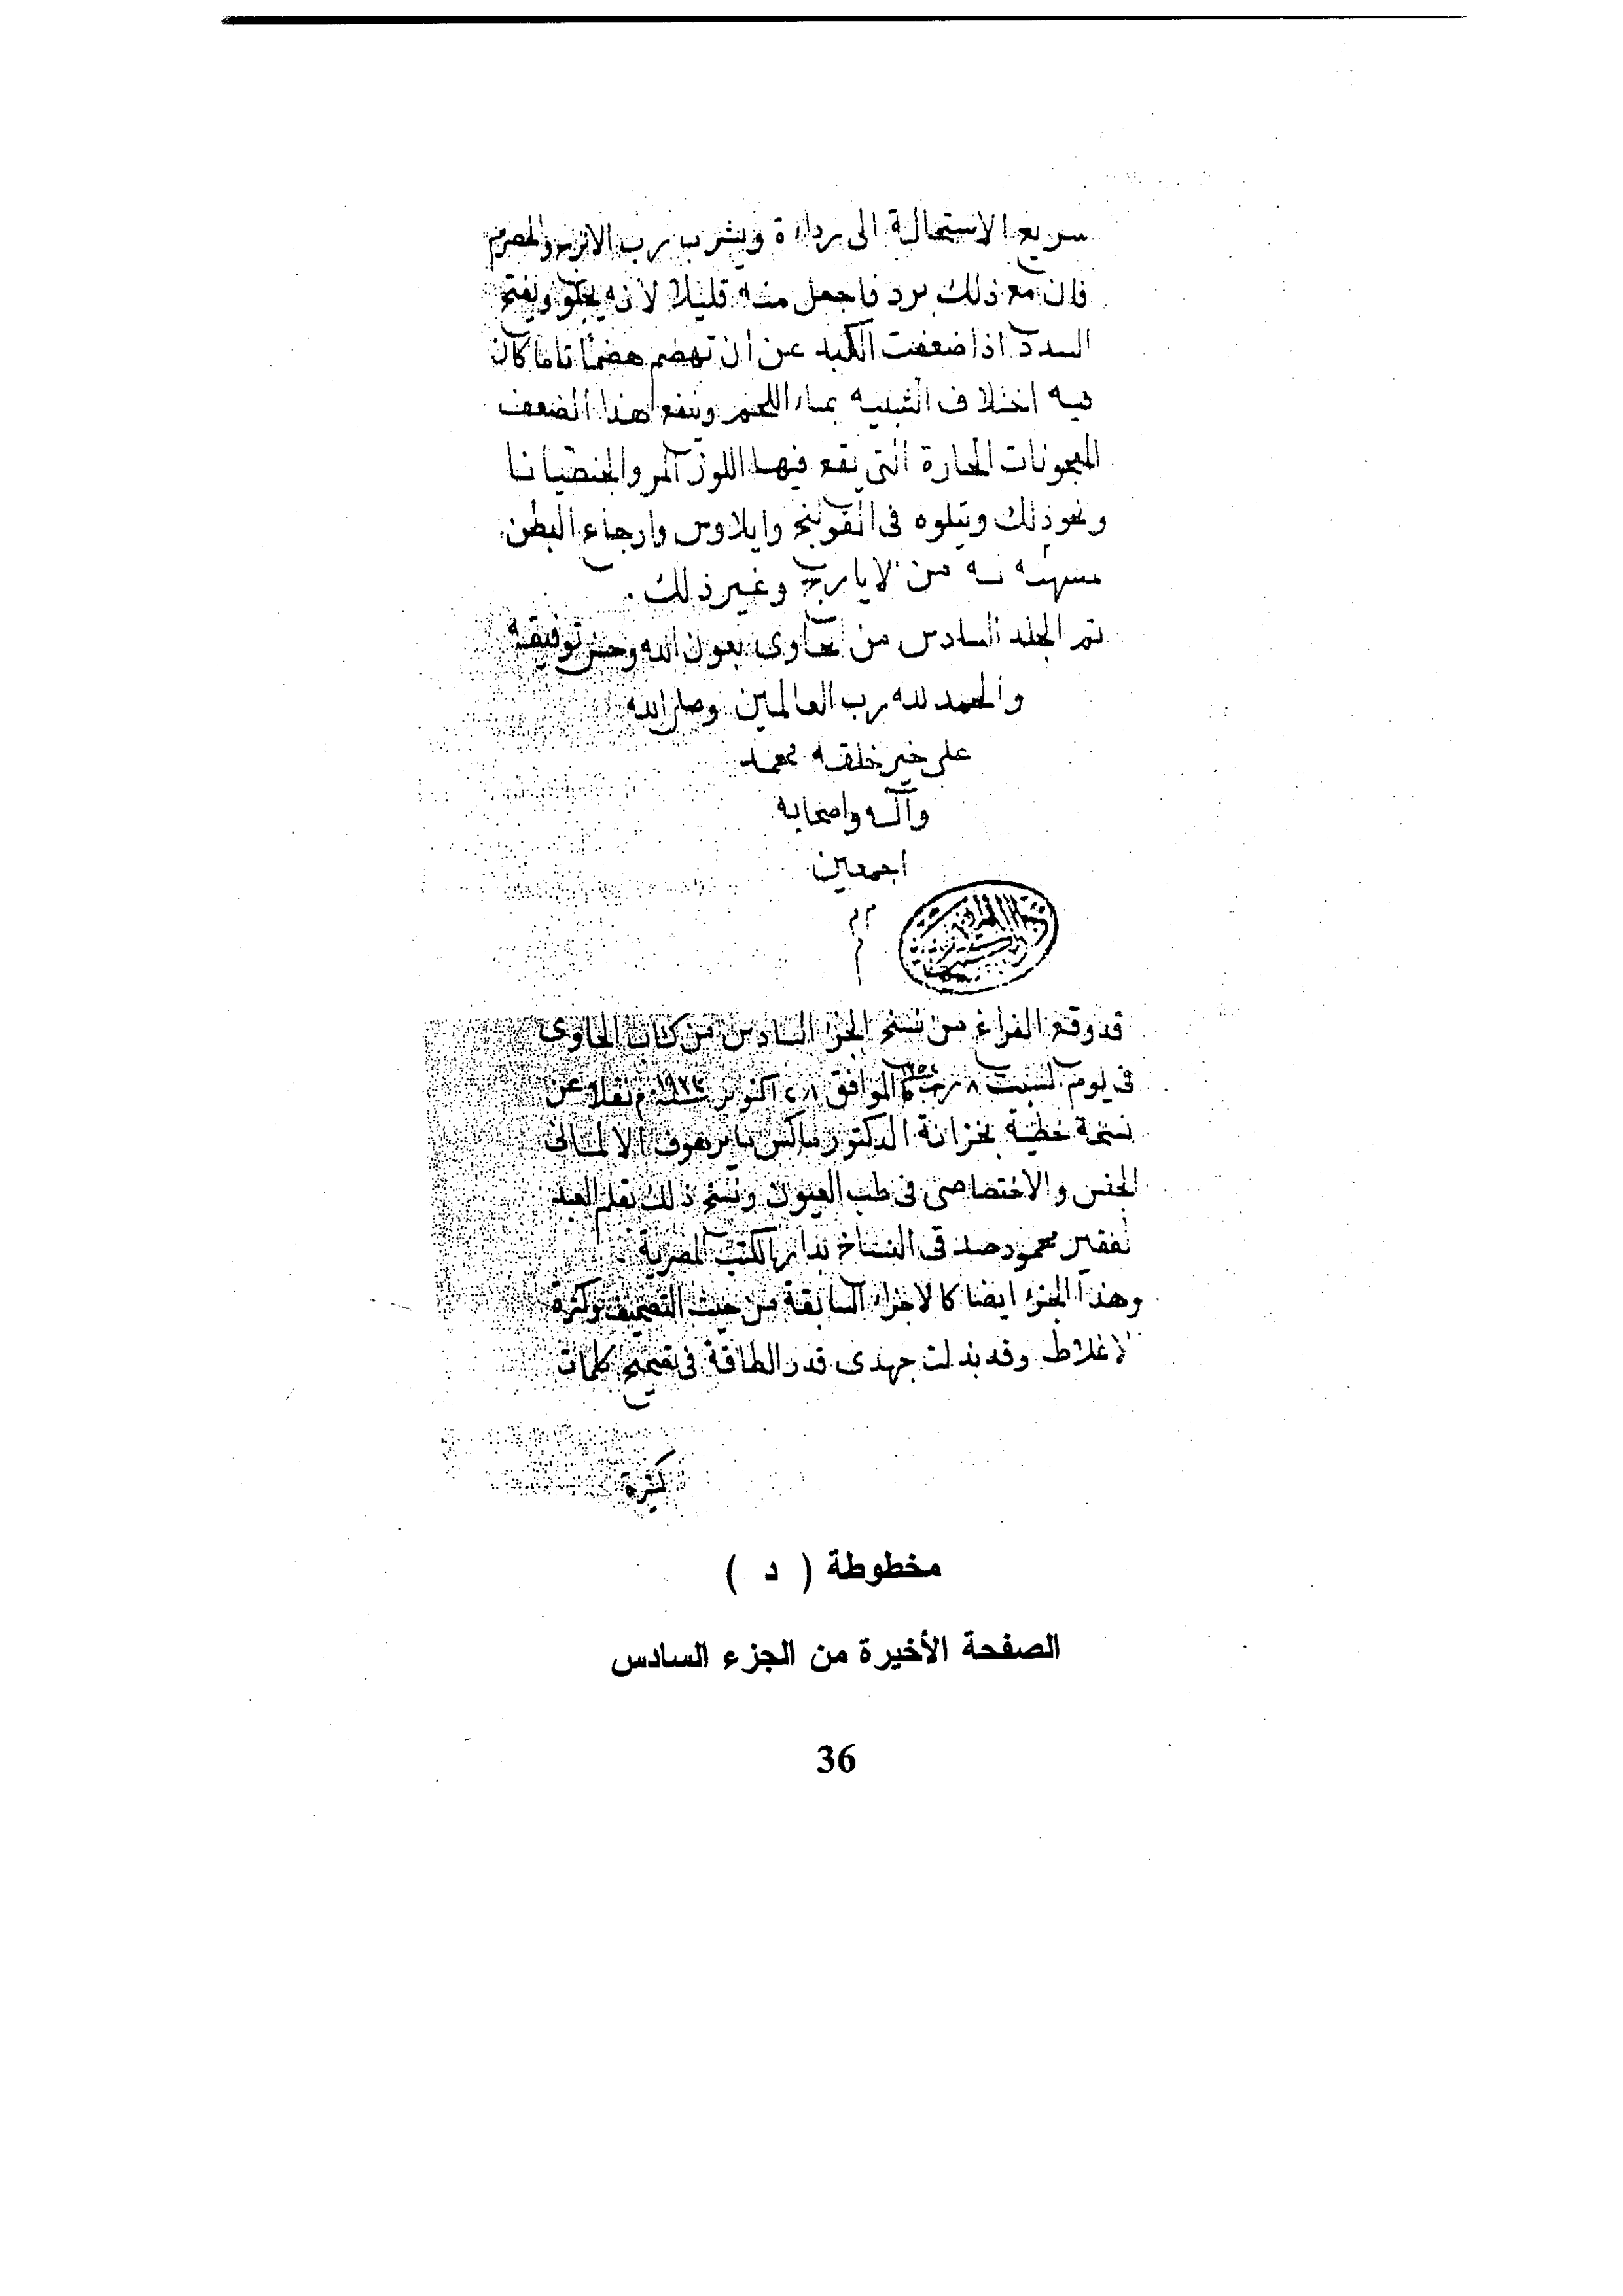 سريع الاستحالة الى رداءة ويشرب رب الاترج والحصرم
فان مع ذلك برد فاجعل منه قليلا لانه يجلو ويفتح
السدد اذا ضعفت الكبد عن ان تهضم هضما تاما كان
فيه اختلاف الشبيه بماء اللحم وينفع هذا الضعف
المعجونات الحارة التى يقع فيها اللوز المر والجنطيانا
ونحو ذلك ويتلوه فى القولنج وايلاوس وارجاع البطن
من الايارج وغير ذلك .
تم الجلد السادس من الحاوى بعون الله وحسن توفيقه
والحمد لله رب العالمين وصلى الله
على خير خلقه محمد
وآله واصحابه
اجمعين
قد وقع الفراغ من نسخ الجزء السادس من كتاب الحاوى
فى يوم السبت ٨ رجب الموافق اكتوبر سنة م نقلا عن
نسخة خطية بخزانة الدكتور ماكس مايرهوف الالمانى
الجنس والاختصاصى فى طب العيون ونسخ ذلك بقلم العبد
الفقير محمود صدقى النساخ بدار الكتب المصرية .
وهذا الجزء ايضا كالاجزاء السابقة من حيث التصحيف وكثرة
الاغلاط وقد بذلت جهدى قدر الطاقة فى تصحيح كلمات
كثيرة
مخطوطة ( د )
الصفحة الأخيرة من الجزء السادس
36